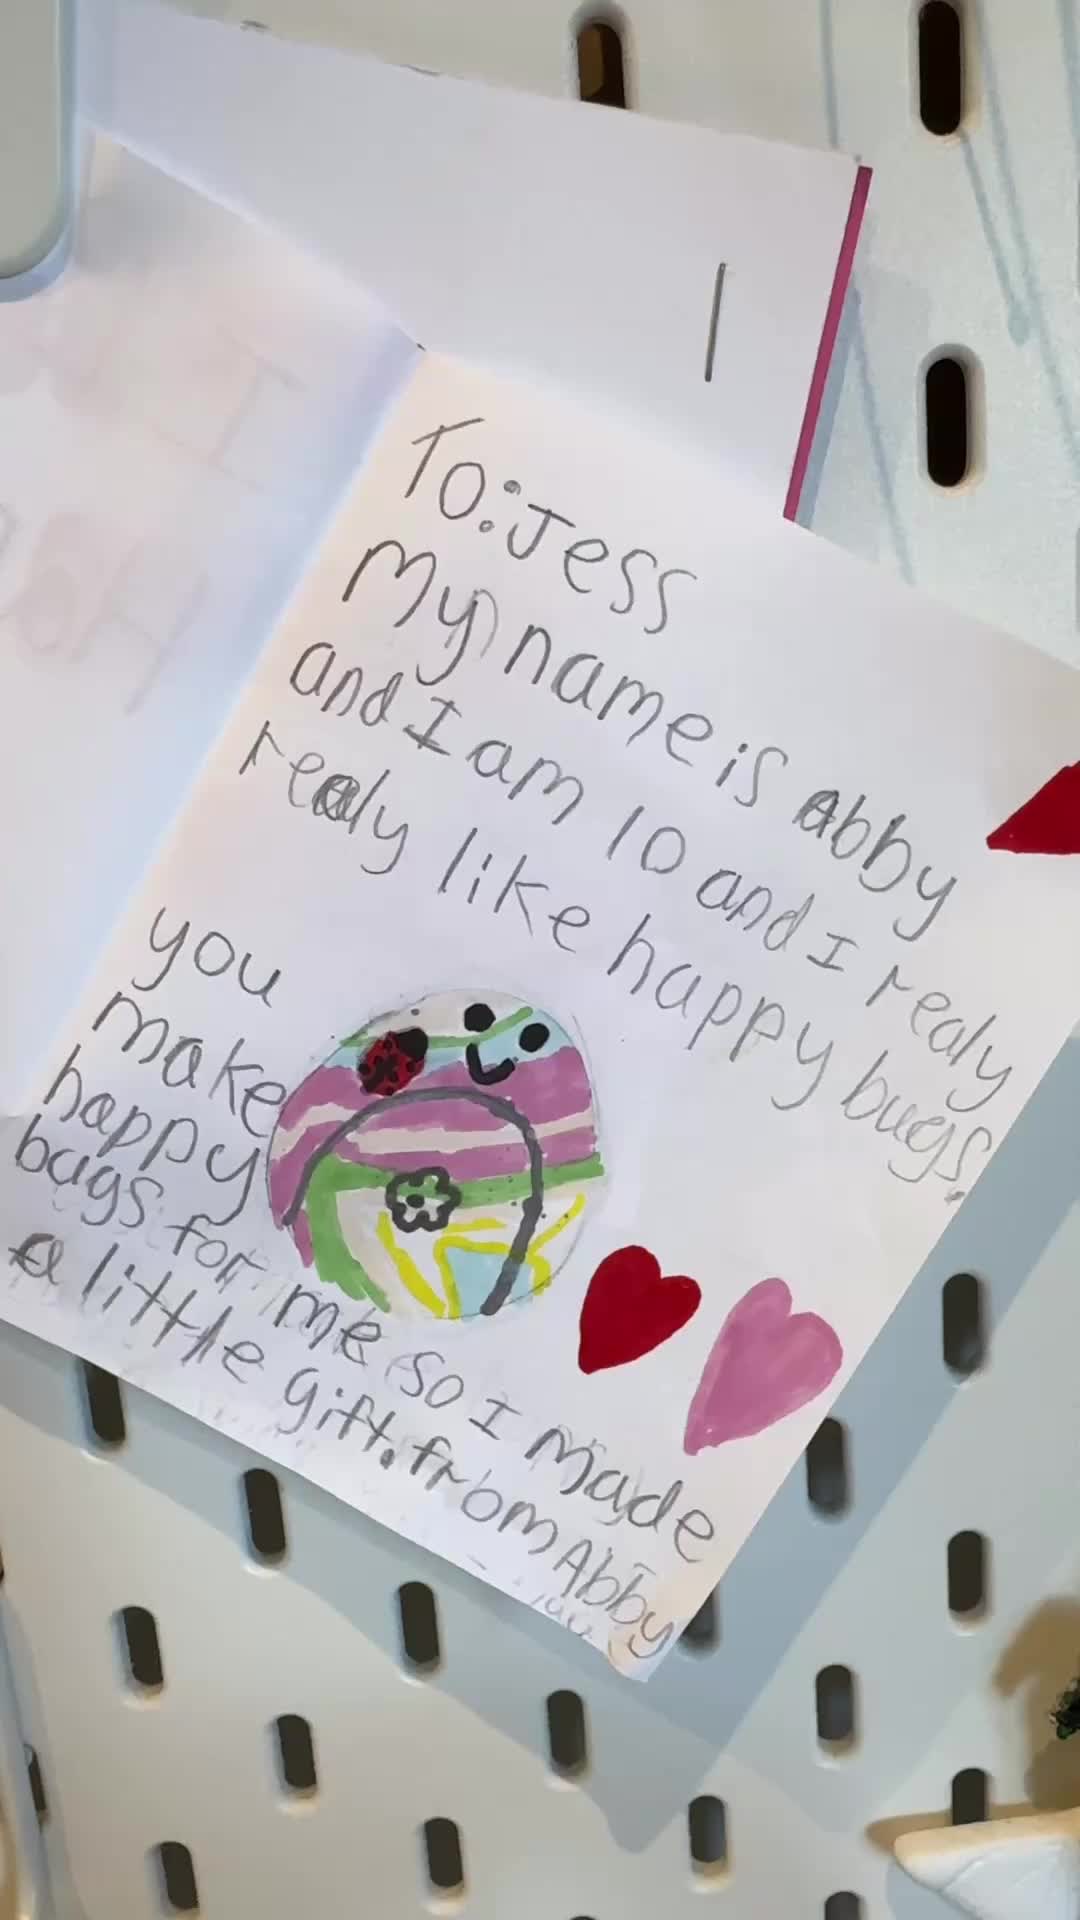 To: Jess
My name is abby
and I am 10 and I realy
realy like happy bugs.
you
make
happy
bugs for me so I made
a little gift. from Abby